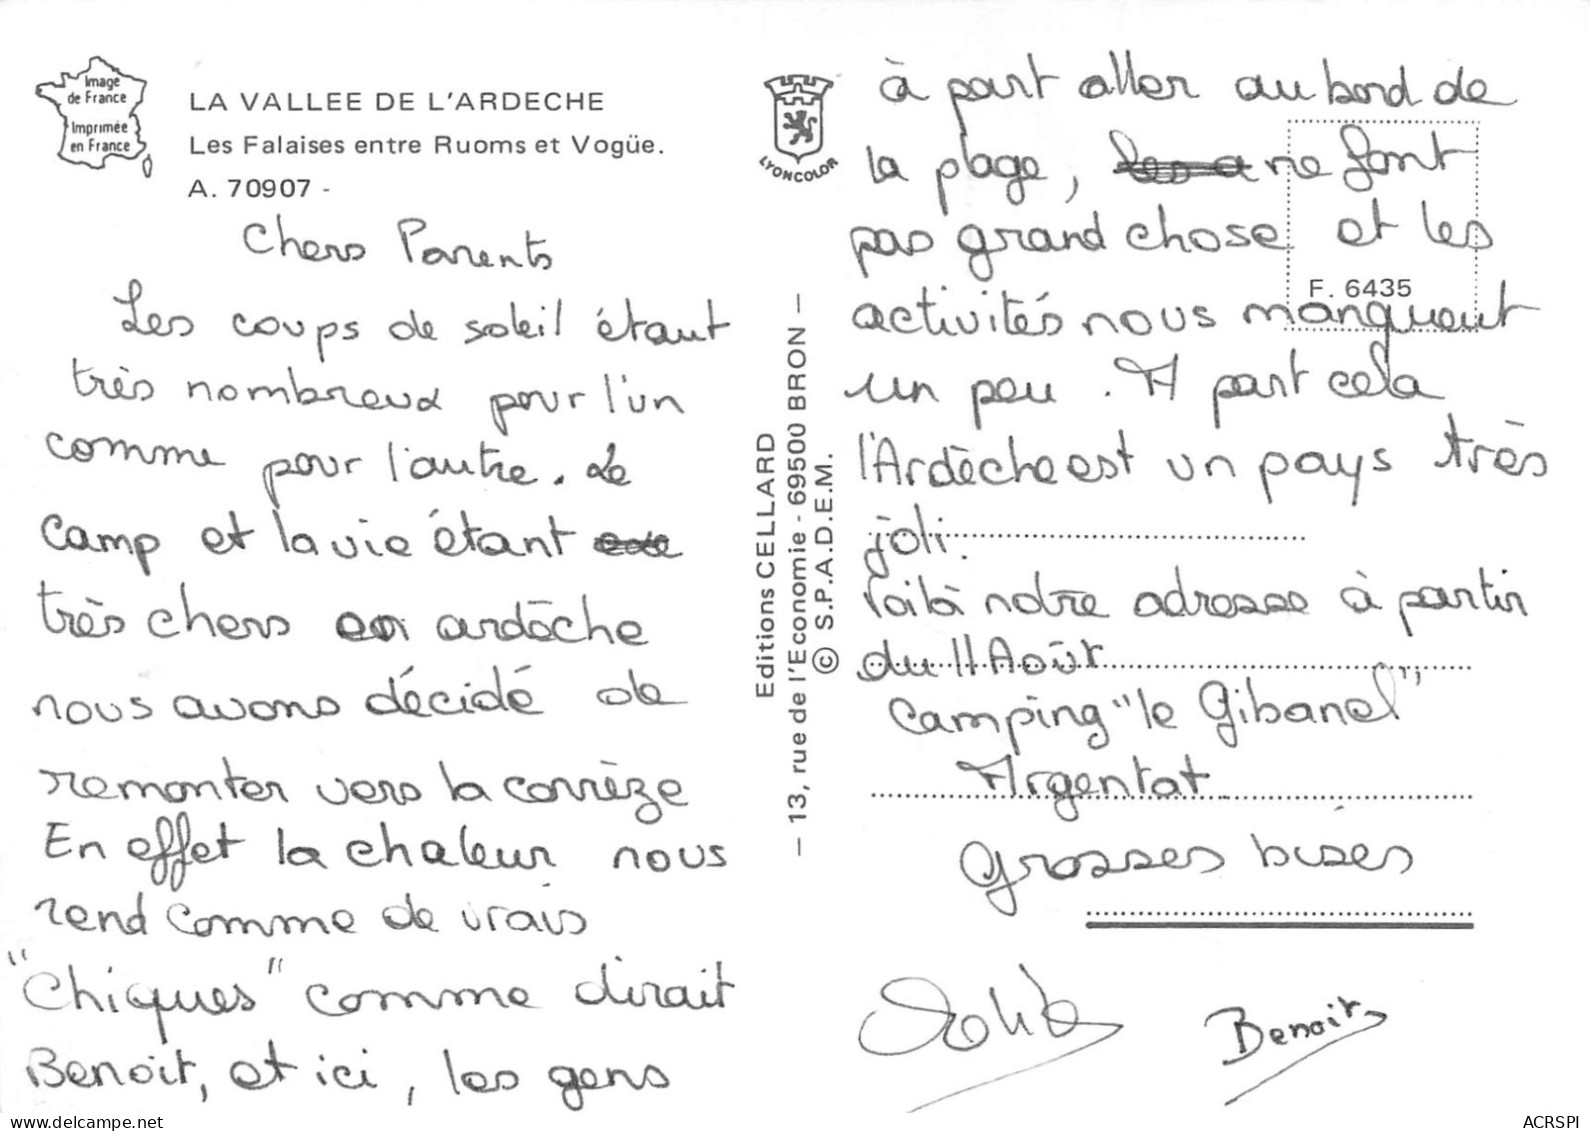 Image
de France
Imprimée
en France
LA VALLEE DE L'ARDECHE
Les Falaises entre Ruoms et Vogüe.
A. 70907 -
Chers Parents
Les coups de soleil étaut
très nombreux pour l'un
comme pour l'autre. Le
camp et la vie étant
très chers en ardèche
nous avons décidé de
remonter vers la corrèze
En effet la chaleur nous
rend comme de vrais
"Chiques" comme dirait
Benoit, et ici, les gens
Editions CELLARD
— 13, rue de l'Economie - 69500 BRON —
© S.P.A.D.E.M.
LYONCOLOR
à part aller au bord de
la plage, ne font
pas grand chose et les
F. 6435
activités nous manquent
un peu. A part cela
l'Ardèche est un pays très
joli.
Voilà notre adresse à partir
du 11 Août
Camping "le Gibanel"
Argentat
grosses bises
Benoit
ACRSPI